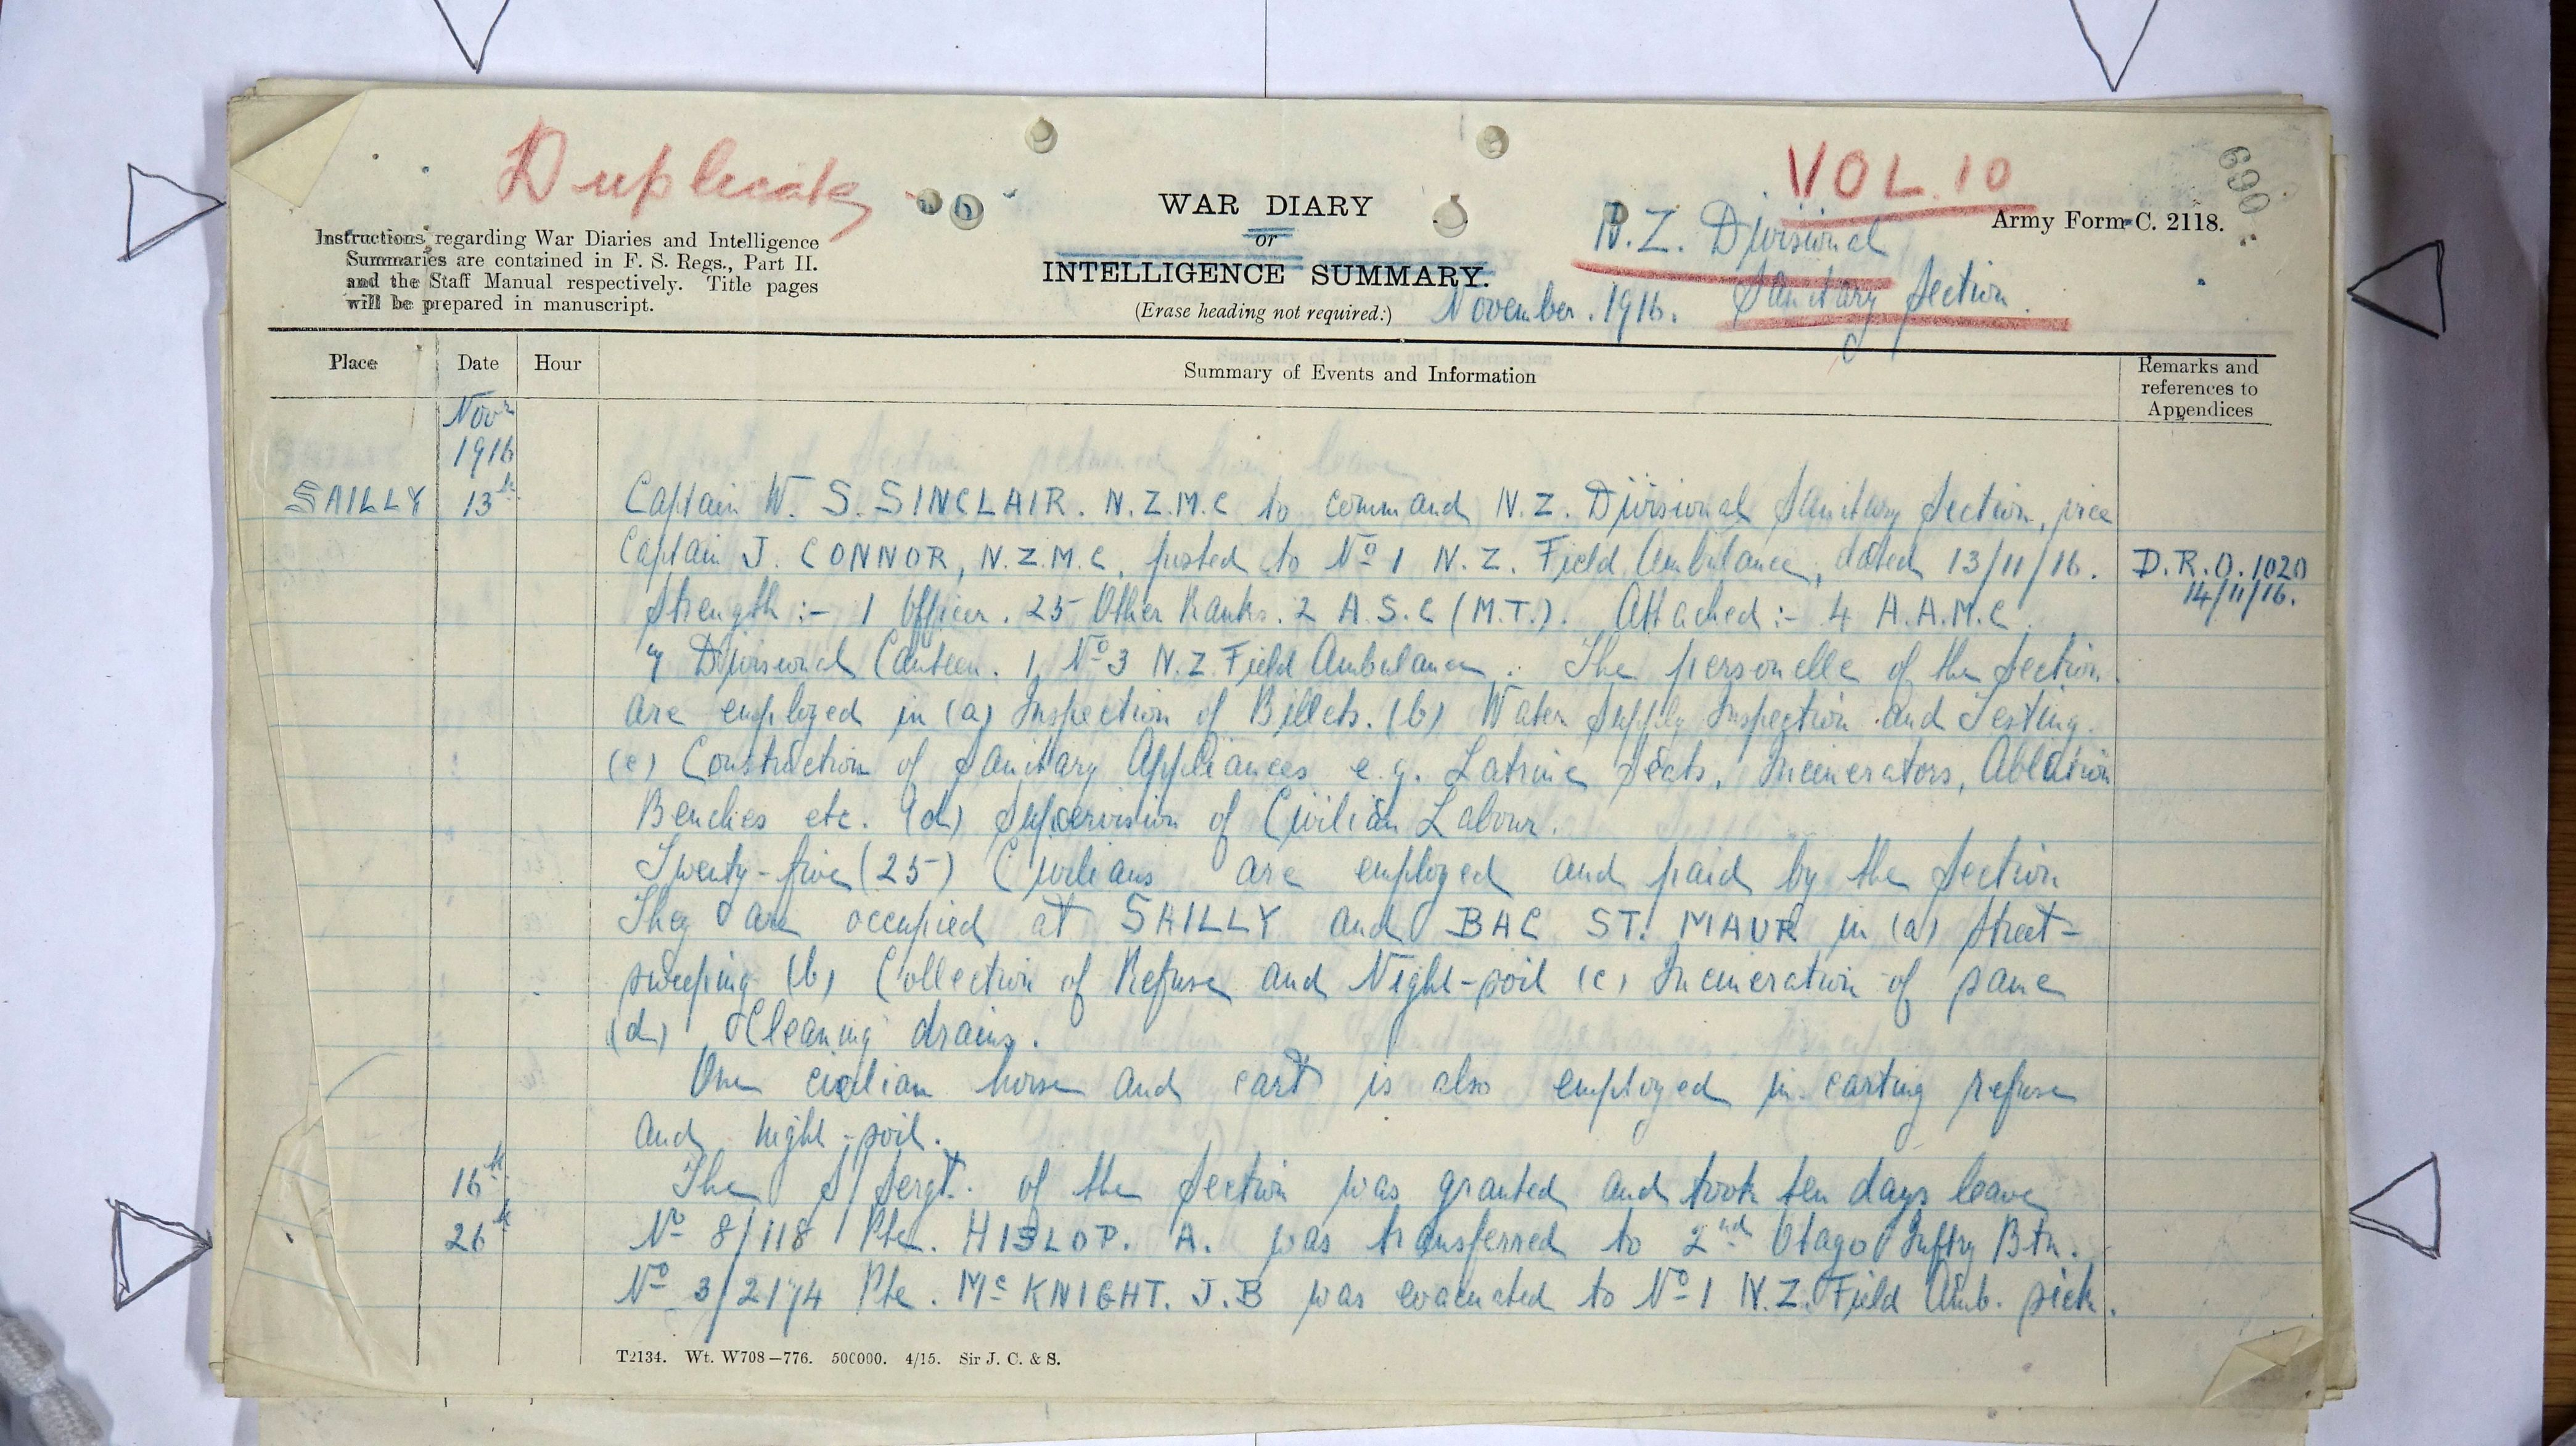 Duplicate
VOL. 10
690
Army Form C. 2118.
WAR DIARY
or
INTELLIGENCE SUMMARY.
(Erase heading not required.)
N.Z. Divisional
Sanitary Section
November. 1916.
Instructions regarding War Diaries and Intelligence
Summaries are contained in F. S. Regs., Part II.
and the Staff Manual respectively. Title pages
will be prepared in manuscript.
Place Date Hour Summary of Events and Information Remarks and
references to
Appendices
Novr
1916
SAILLY 13th Captain W. S. SINCLAIR. N.Z.M.C to command N.Z. Divisional Sanitary Section, vice
Captain J. CONNOR, N.Z.M.C. posted to No 1 N.Z. Field Ambulance, dated 13/11/16. D.R.O. 1020
14/11/16.
Strength :- 1 Officer. 25 Other Ranks. 2 A.S.C (M.T.). Attached :- 4 A.A.M.C.
Divisional Canteen. 1, No 3 N.Z Field Ambulance. The personelle of the Section
are employed in (a) Inspection of Billets. (b) Water Supply Inspection and Testing.
(c) Construction of Sanitary Appliances e.g. Latrine Seats, Incinerators, Ablution
Benches etc. (d) Supervision of Civilian Labour.
Twenty-five (25) Civilians are employed and paid by the Section
They are occupied at SAILLY and BAC ST. MAUR in (a) Street-
sweeping (b) Collection of Refuse and Night-soil (c) Incineration of same
(d) Cleaning drains.
One civilian horse and cart is also employed in carting refuse
and night-soil.
16th The S/Sergt. of the Section was granted and took ten days leave
26th No 8/118 Pte. HISLOP. A. was transferred to 2nd Otago Inftry Btn.
No 3/2174 Pte. Mc KNIGHT. J.B was evacuated to No 1 N.Z. Field Amb. sick.
T2134. Wt. W708—776. 500000. 4/15. Sir J. C. & S.